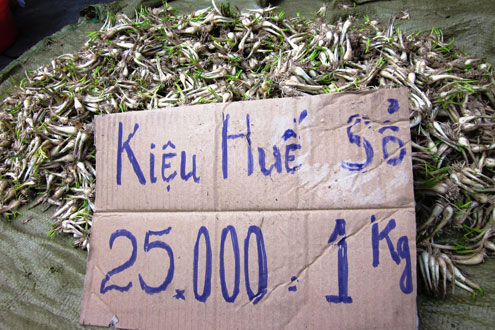 Kiệu Huế Sổ
25.000 : 1 Kg